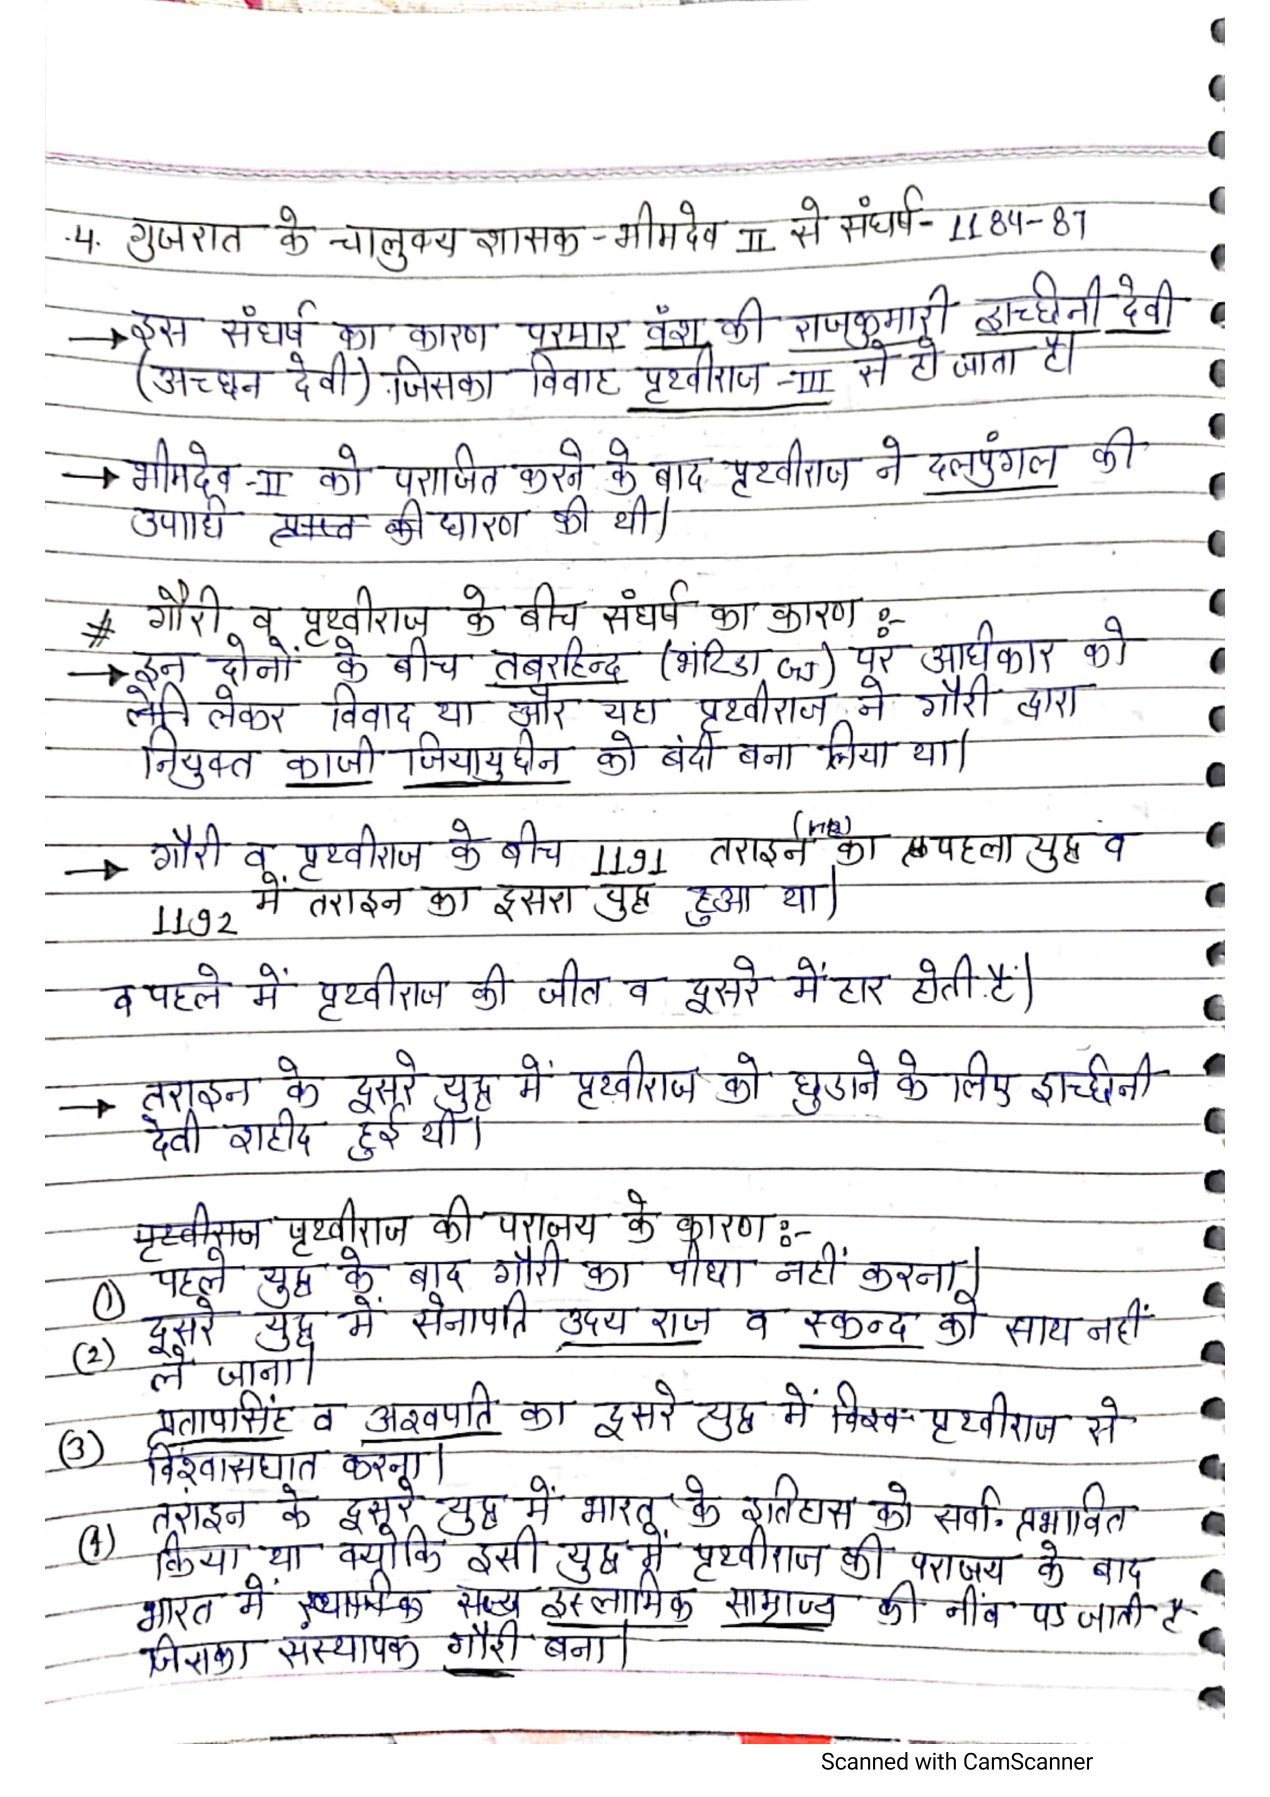 .4. गुजरात के चालुक्य शासक - भीमदेव II से संघर्ष - 1184-87
→ इस संघर्ष का कारण परमार वंश की राजकुमारी इच्छिनी देवी
(अच्छन देवी) जिसका विवाह पृथ्वीराज -III से हो जाता है।
→ भीमदेव -II को पराजित करने के बाद पृथ्वीराज ने दलपुंगल की
उपाधि की धारण की थी।
# गौरी व पृथ्वीराज के बीच संघर्ष का कारण :-
→ इन दोनों के बीच तबरहिन्द (भंटिडा) पर अधिकार को
लेकर विवाद था और यहा पृथ्वीराज ने गौरी द्वारा
नियुक्त काजी जियायुद्दीन को बंदी बना लिया था।
→ गौरी व पृथ्वीराज के बीच 1191 तराइन का पहला युद्ध व
1192 में तराइन का दूसरा युद्ध हुआ था।
व पहले में पृथ्वीराज की जीत व दूसरे में हार होती है।
→ तराइन के दूसरे युद्ध में पृथ्वीराज को छुडाने के लिए इच्छिनी
देवी शहीद हुई थी।
पृथ्वीराज पृथ्वीराज की पराजय के कारण :-
(1) पहले युद्ध के बाद गौरी का पीछा नहीं करना।
(2) दूसरे युद्ध में सेनापति उदय राज व स्कन्द को साथ नहीं
ले जाना।
(3) प्रतापसिंह व अश्वपति का दूसरे युद्ध में विश्व पृथ्वीराज से
विश्वासघात करना।
(4) तराइन के दूसरे युद्ध में भारत के इतिहास को सर्वा. प्रभावित
किया था क्योंकि इसी युद्ध में पृथ्वीराज की पराजय के बाद
भारत में इस्लामिक साम्राज्य की नींव पड जाती है
जिसका संस्थापक गौरी बना।
Scanned with CamScanner